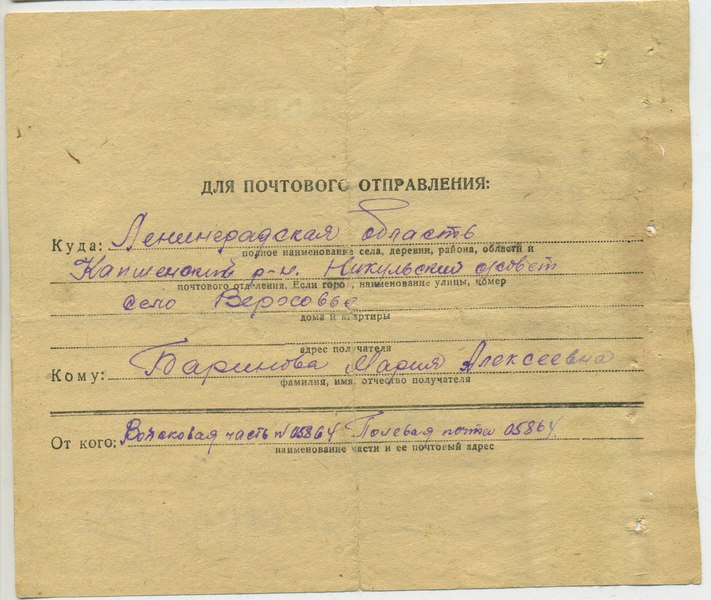 ДЛЯ ПОЧТОВОГО ОТПРАВЛЕНИЯ:
Куда: Ленинградская область
полное наименование села, деревни, района, области и
Капшенский р-н. Никульский с/совет
почтового отделения. Если город, наименование улицы, номер
село Верховье
дома и квартиры
адрес получателя
Кому: Баринова Мария Алексеевна
фамилия, имя, отчество получателя
От кого: Войсковая часть N 05864 Полевая почта 05864
наименование части и ее почтовый адрес